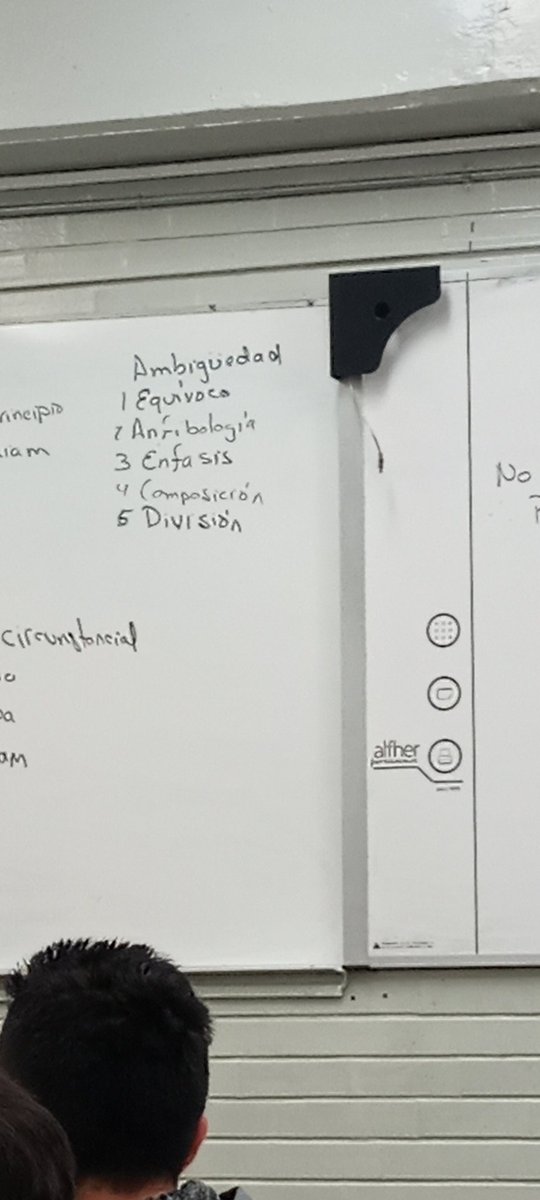 Ambigüedad
1 Equívoco
rincipio
2 Anfibología
iam
3 Enfasis
4 Composición
5 División
No
circunstancial
o
a
am
alfher